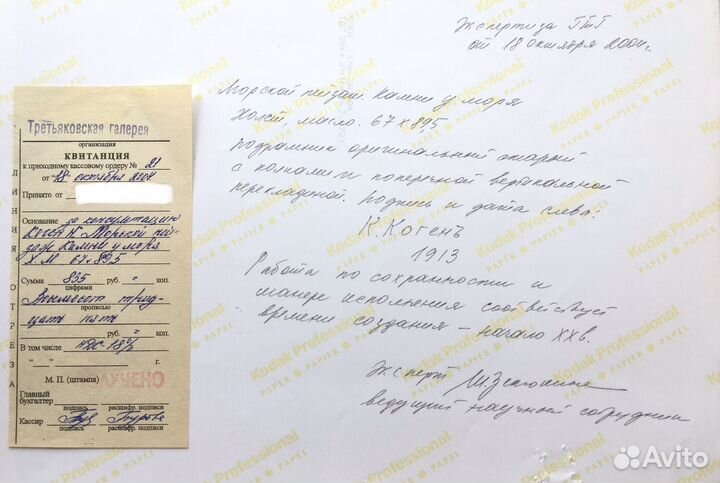 Третьяковская галерея
организация
КВИТАНЦИЯ
к приходному кассовому ордеру № 21
от "18" октября 2004
Принято от
Основание за консультацию
Коген К. Морской пей-
заж Камни у моря
Х.М 67х895
Сумма 835 руб. = коп.
цифрами
Восемьсот трид-
прописью
цать пять
руб. = коп.
В том числе НДС-18%
"__" г.
М. П. (штампа)
ЛУЧЕНО
Главный
бухгалтер
подпись расшифр. подписи
Кассир
подпись расшифр. подписи
ЛИНИЯ ОТРЕЗА
Экспертиза ГТГ
от 18 октября 2004г.
Морской пейзаж. Камни у моря
Холст, масло. 67 х 895
подрамник оригинальный старый
с колками и поперечной вертикальной
перекладиной. Подпись и дата слева:
К. Когенъ
1913
Работа по сохранности и
манере исполнения соответствует
времени создания – начало ХХв.
Эксперт
ведущий научный сотрудник
Kodak Professional
PAPER • PAPIER • PAPEL
Avito